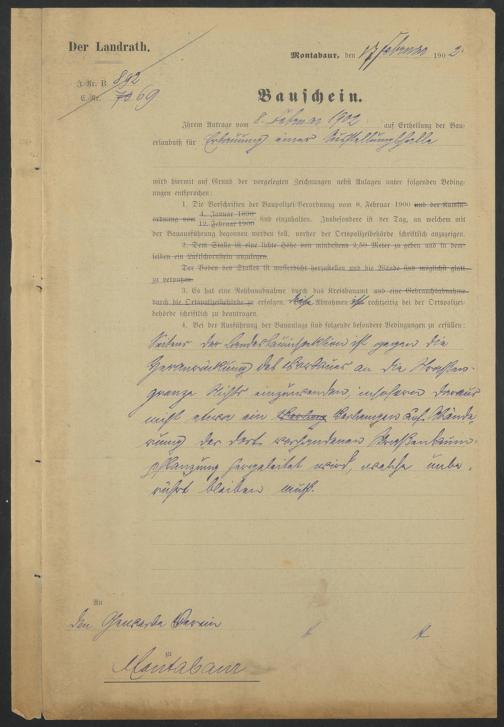 Der Landrath.
Montabaur, den 17 Februar 1902.
J.-Nr. B 892
C.-Nr. 7369
Bauschein.
Ihrem Antrage vom 8. Februar 1902 auf Ertheilung der Bau-
erlaubniß für Erbauung einer Ausstellungshalle
wird hiermit auf Grund der vorgelegten Zeichnungen nebst Anlagen unter folgenden Beding-
ungen entsprochen:
1. Die Vorschriften der Baupolizei-Verordnung vom 8. Februar 1900 und der
ordnung vom 4. Januar 1890
12. Februar 1900 sind einzuhalten. Insbesondere ist der Tag, an welchem mit
der Bauausführung begonnen werden soll, vorher der Ortspolizeibehörde schriftlich anzuzeigen.
2. Dem Stalle ist eine lichte Höhe von mindestens 2,50 Meter zu geben und in dem-
selben ein Luftschornstein anzulegen.
Der Boden des Stalles ist wasserdicht herzustellen und die Wände sind möglichst glatt
zu verputzen.
3. Es hat eine Rohbauabnahme durch das Kreisbauamt und eine Gebrauchsabnahme
durch die Ortspolizeibehörde zu erfolgen. Abnahmen ist rechtzeitig bei der Ortspolizei-
behörde schriftlich zu beantragen.
4. Bei der Ausführung der Bauanlage sind folgende besondere Bedingungen zu erfüllen:
Seitens der Landesbauinspektion ist gegen die
Heranrückung des Vorbaues an die Straßen-
grenze Nichts einzuwenden, insofern daraus
nicht etwa ein Verlangen auf Ände
rung der dort vorhandenen Straßenbaum-
pflanzung hergeleitet wird, welche unbe-
rührt bleiben muß.
An
den Gewerbe Verein
zu
Montabaur